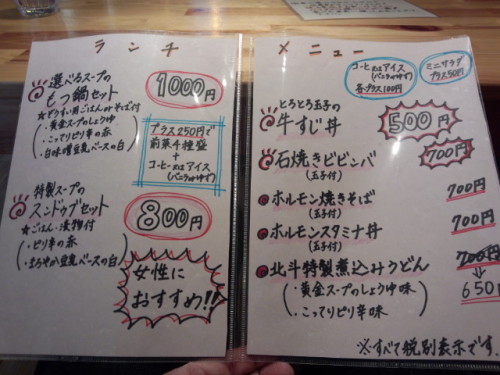 ランチ
選べるスープの
もつ鍋セット
1000円
・黄金スープのしょうゆ
・こってりピリ辛の赤
・白味噌豆乳ベースの白
プラス250円で
前菜4種盛
+
コーヒー又はアイス
(バニラorゆず)
特製スープの
スンドゥブセット
800円
★ごはん・漬物付
・ピリ辛の赤
・まろやか豆乳ベースの白
女性に
おすすめ!!
メニュー
コーヒー又はアイス
(バニラorゆず)
各プラス100円
ミニサラダ
プラス50円
とろとろ玉子の
牛すじ丼
500円
石焼きビビンバ
(玉子付)
700円
ホルモン焼きそば
(玉子付)
700円
ホルモンスタミナ丼
(玉子付)
700円
北斗特製煮込みうどん
700円
650円
・黄金スープのしょうゆ味
・こってりピリ辛味
※すべて税別表示です。